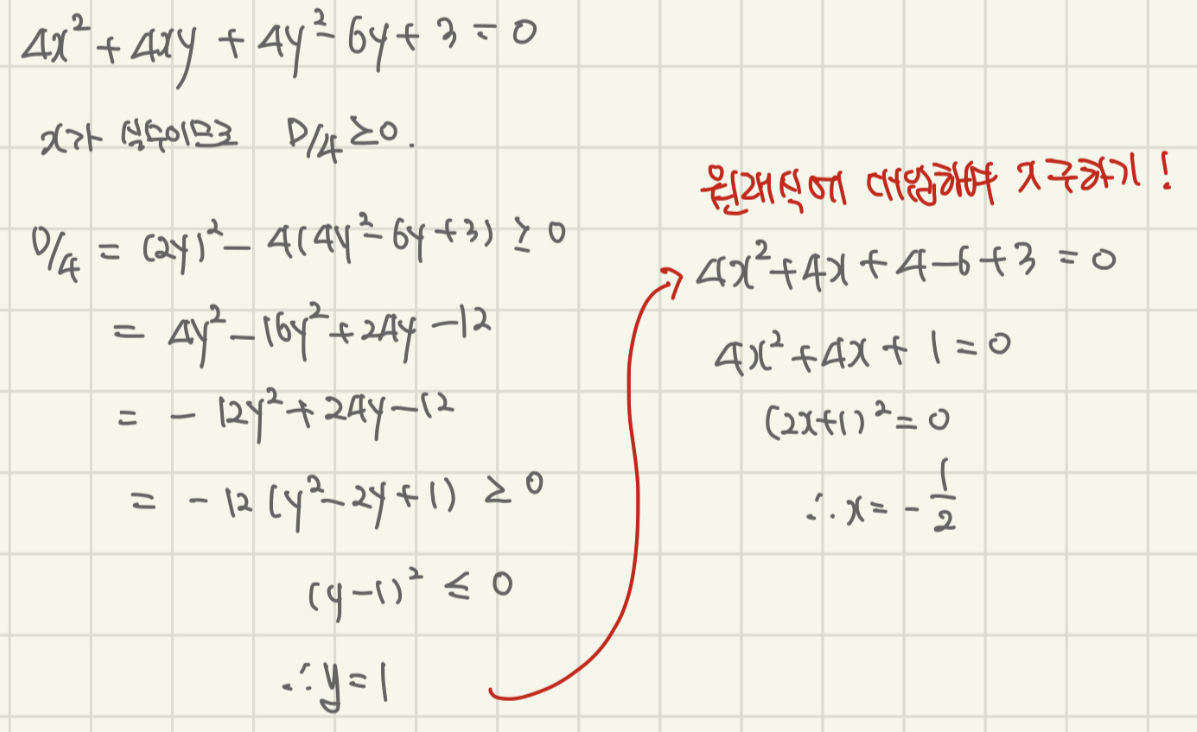 4x² + 4xy + 4y² - 6y + 3 = 0
x가 실수이므로 D/4 ≥ 0.
D/4 = (2y)² - 4(4y² - 6y + 3) ≥ 0
= 4y² - 16y² + 24y - 12
= - 12y² + 24y - 12
= - 12 (y² - 2y + 1) ≥ 0
(y - 1)² ≤ 0
∴ y = 1
원래식에 대입하여 x 구하기 !
4x² + 4x + 4 - 6 + 3 = 0
4x² + 4x + 1 = 0
(2x+1)² = 0
∴ x = - 1/2